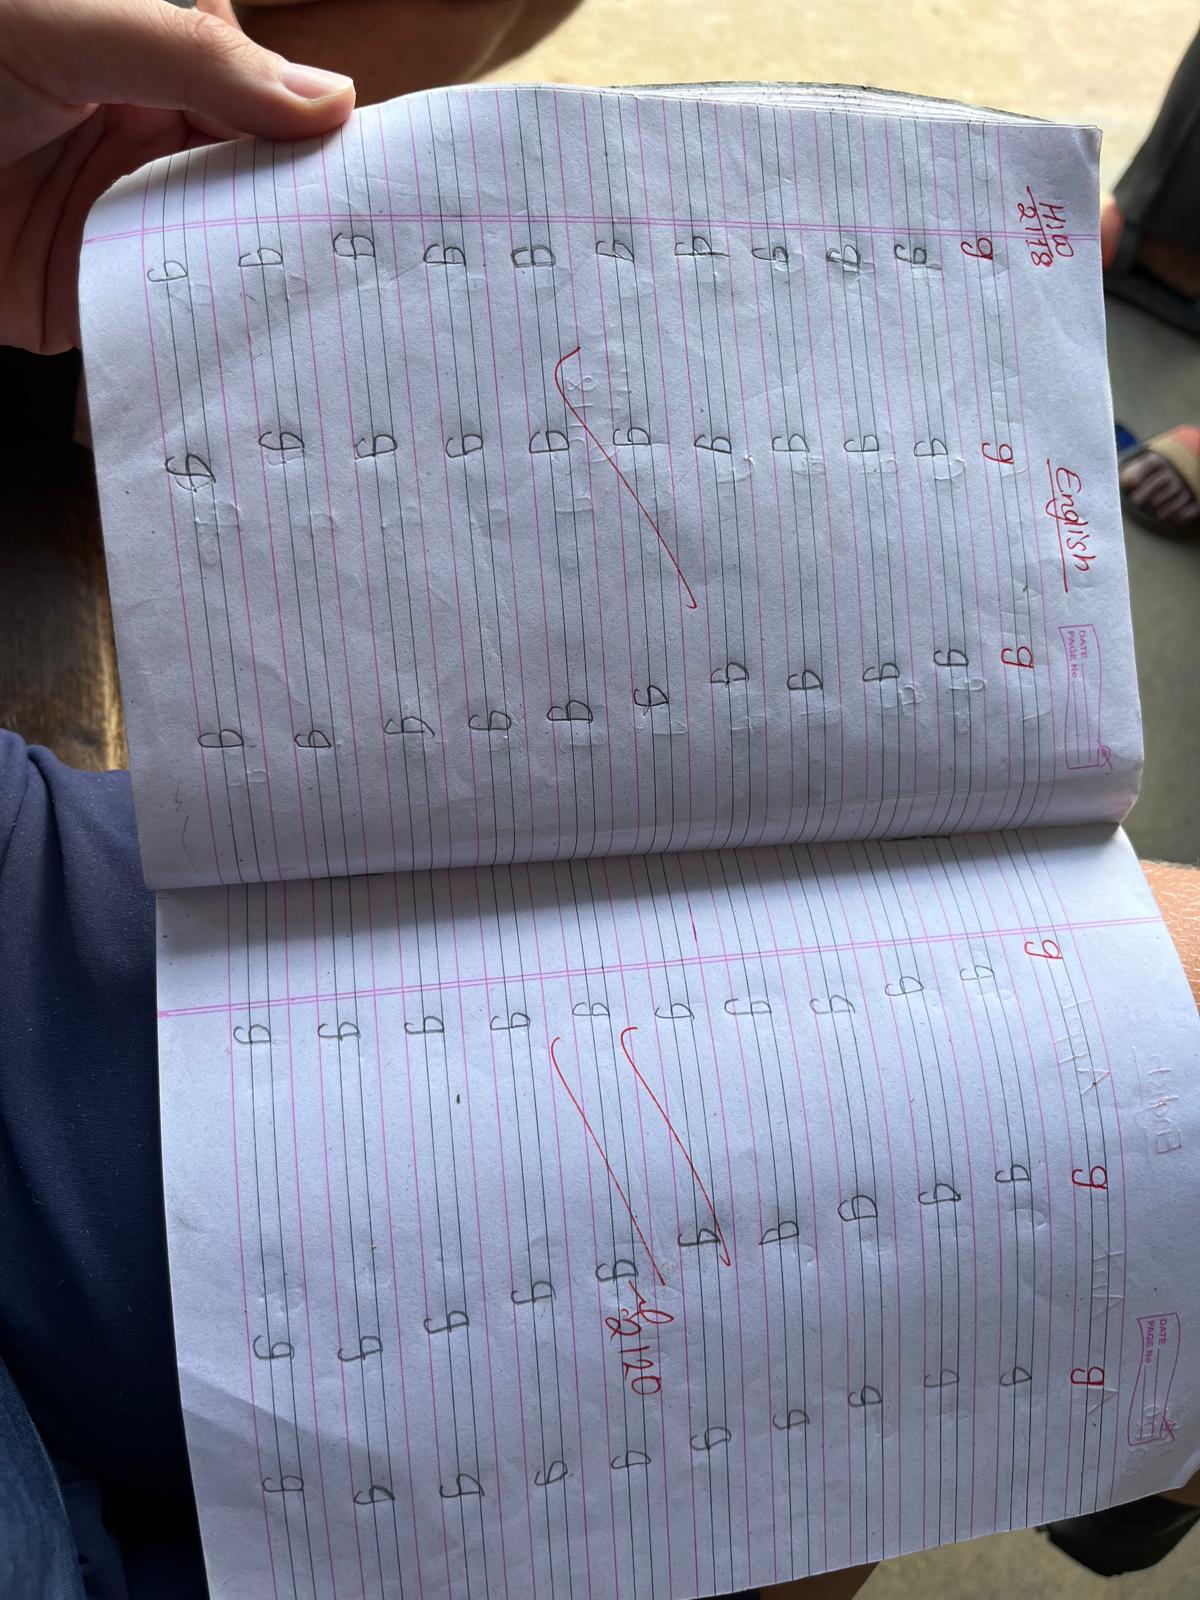 H/W
2118
English
DATE
PAGE No
g g g
g g g
g g g
g g g
g g g
g g g
g g g
g g g
g g g
g g g
g g g
DATE
PAGE No
g g g
g g g
g g g
g g g
g g g
g g g
g g g
2120
g g g
g g g
g g g
g g g